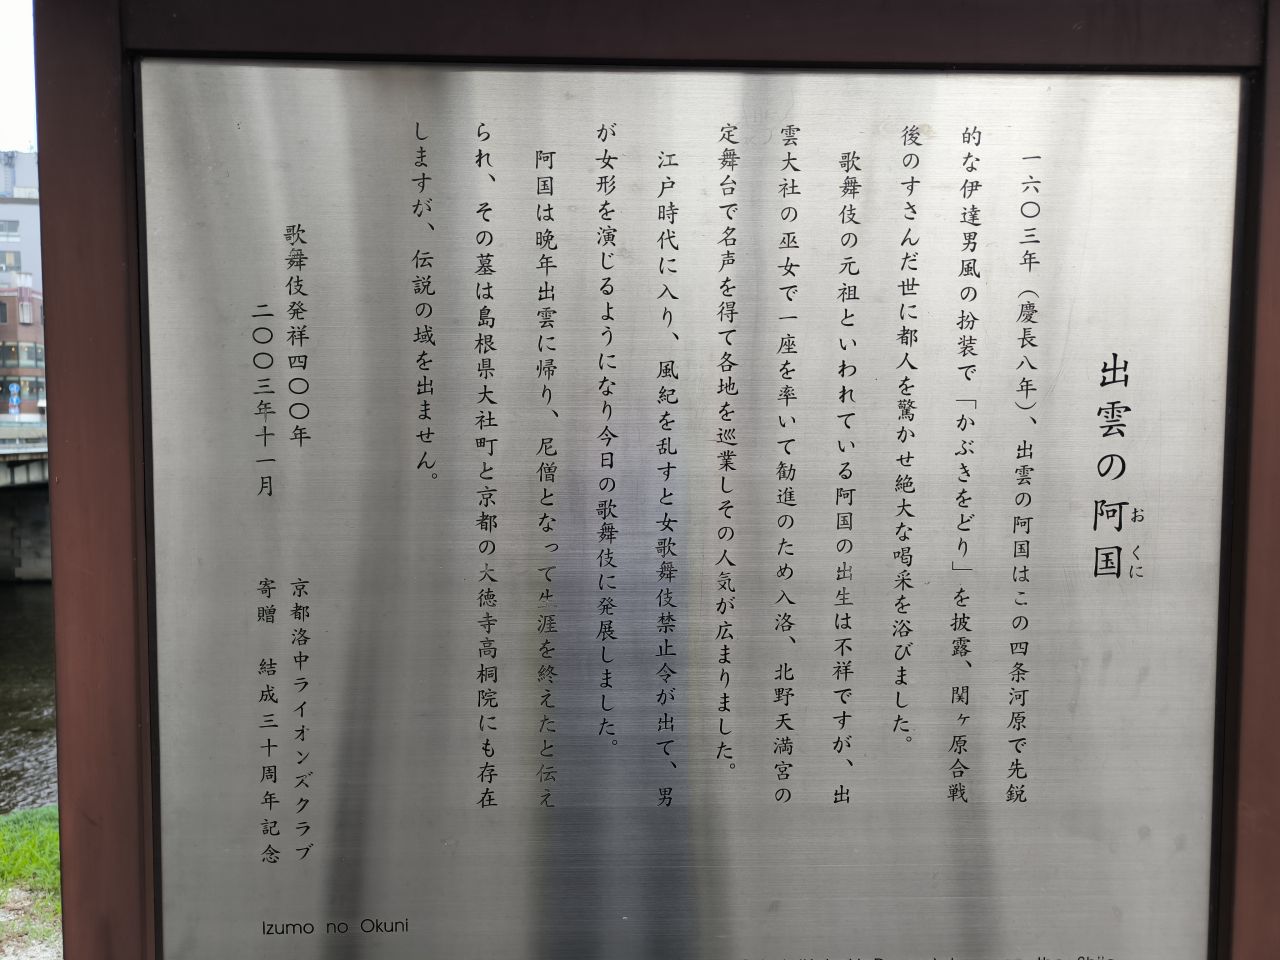 出雲の阿国
おくに
一六〇三年（慶長八年）、出雲の阿国はこの四条河原で先鋭
的な伊達男風の扮装で「かぶきをどり」を披露、関ヶ原合戦
後のすさんだ世に都人を驚かせ絶大な喝采を浴びました。
歌舞伎の元祖といわれている阿国の出生は不祥ですが、出
雲大社の巫女で一座を率いて勧進のため入洛、北野天満宮の
定舞台で名声を得て各地を巡業しその人気が広まりました。
江戸時代に入り、風紀を乱すと女歌舞伎禁止令が出て、男
が女形を演じるようになり今日の歌舞伎に発展しました。
阿国は晩年出雲に帰り、尼僧となって生涯を終えたと伝え
られ、その墓は島根県大社町と京都の大徳寺高桐院にも存在
しますが、伝説の域を出ません。
歌舞伎発祥四〇〇年
二〇〇三年十一月
京都洛中ライオンズクラブ
寄贈 結成三十周年記念
Izumo no Okuni